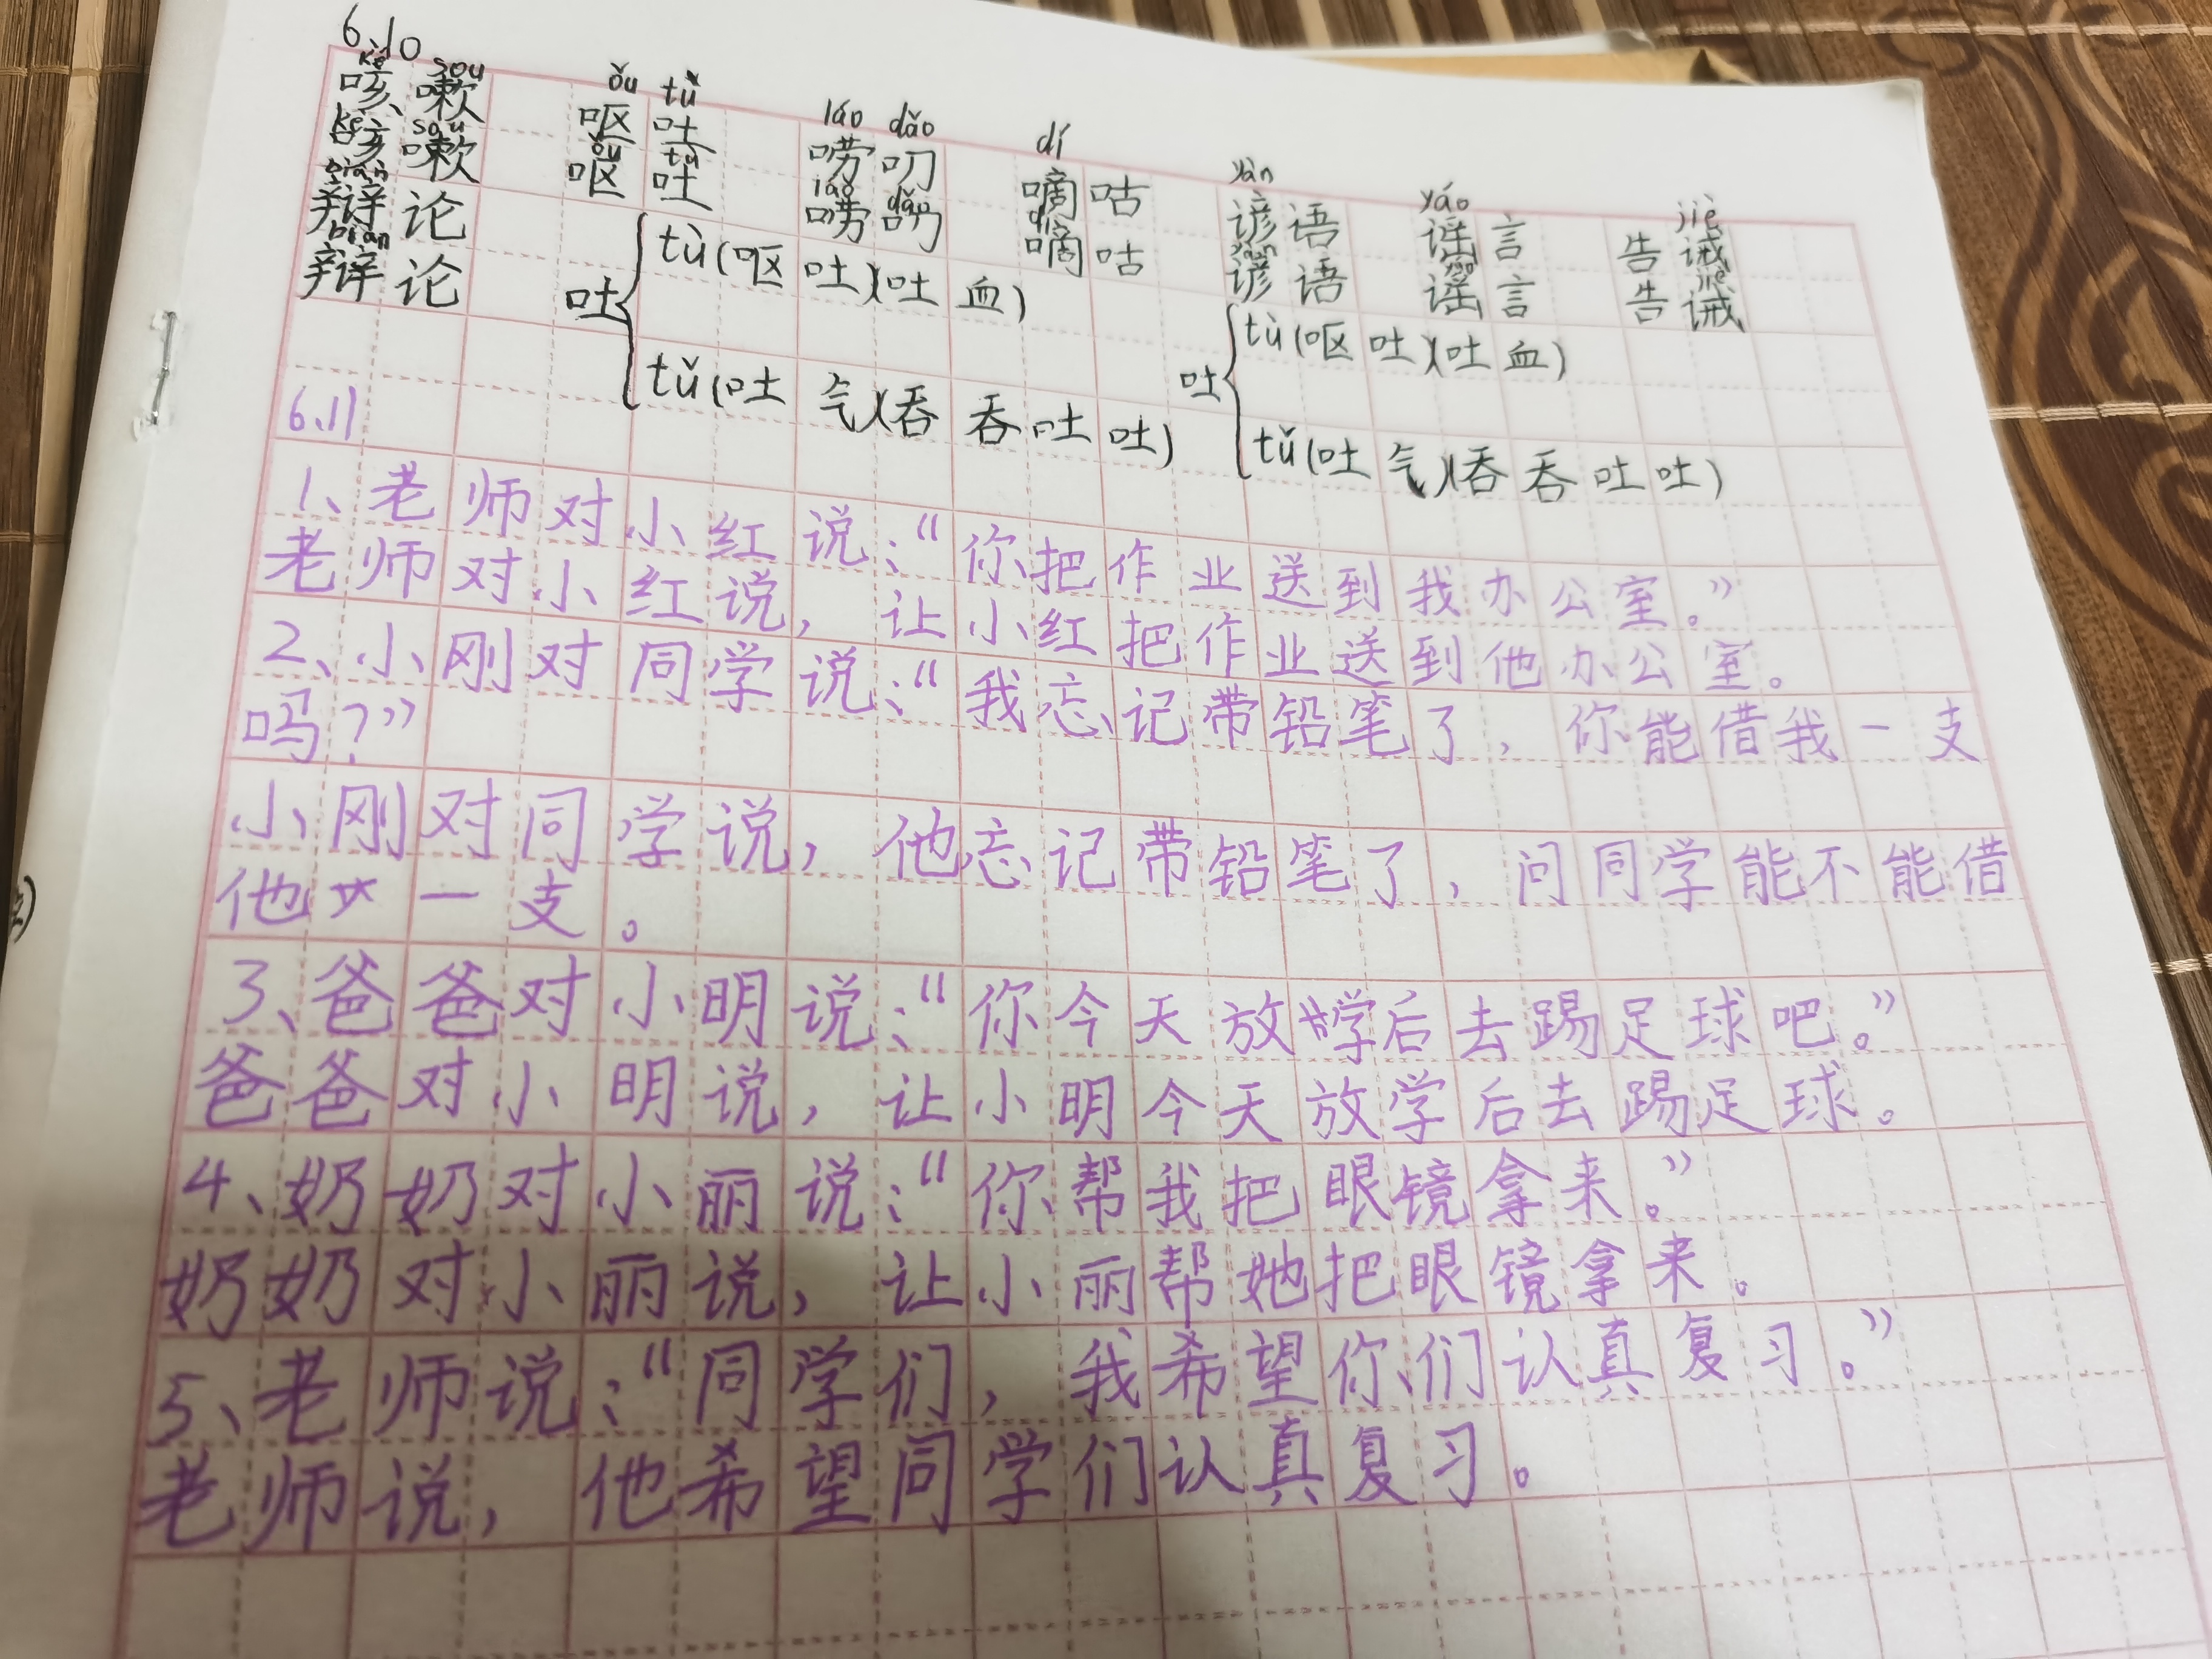 6.10
ké sou ǒu tù láo dāo dí yàn yáo jiè
咳嗽 呕吐 唠叨 嘀咕 谚语 谣言 告诫
咳嗽 呕吐 唠叨 嘀咕 谚语 谣言 告诫
辩论
辩论
吐 tù(呕吐)(吐血) tǔ(吐气)(吞吞吐吐)
吐 tù(呕吐)(吐血) tǔ(吐气)(吞吞吐吐)
6.11
1、老师对小红说:“你把作业送到我办公室。”
老师对小红说，让小红把作业送到他办公室。
2、小刚对同学说:“我忘记带铅笔了，你能借我一支
吗?”
小刚对同学说，他忘记带铅笔了，问同学能不能借
他一支。
3、爸爸对小明说:“你今天放学后去踢足球吧。”
爸爸对小明说，让小明今天放学后去踢足球。
4、奶奶对小丽说:“你帮我把眼镜拿来。”
奶奶对小丽说，让小丽帮她把眼镜拿来。
5、老师说:“同学们，我希望你们认真复习。”
老师说，他希望同学们认真复习。